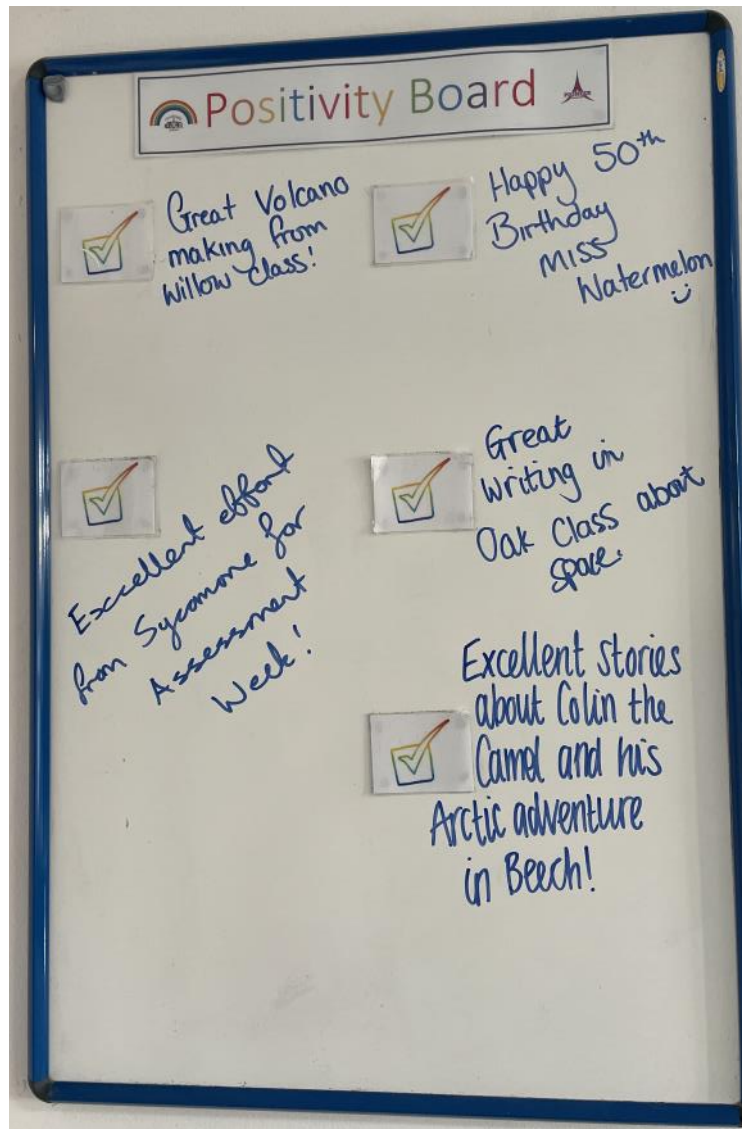 Positivity Board
Great Volcano
making from
Willow Class!
Happy 50th
Birthday
Miss
Watermelon
Excellent effort
from Sycamore for
Assessment
Week!
Great
writing in
Oak Class about
space.
Excellent stories
about Colin the
Camel and his
Arctic adventure
in Beech!